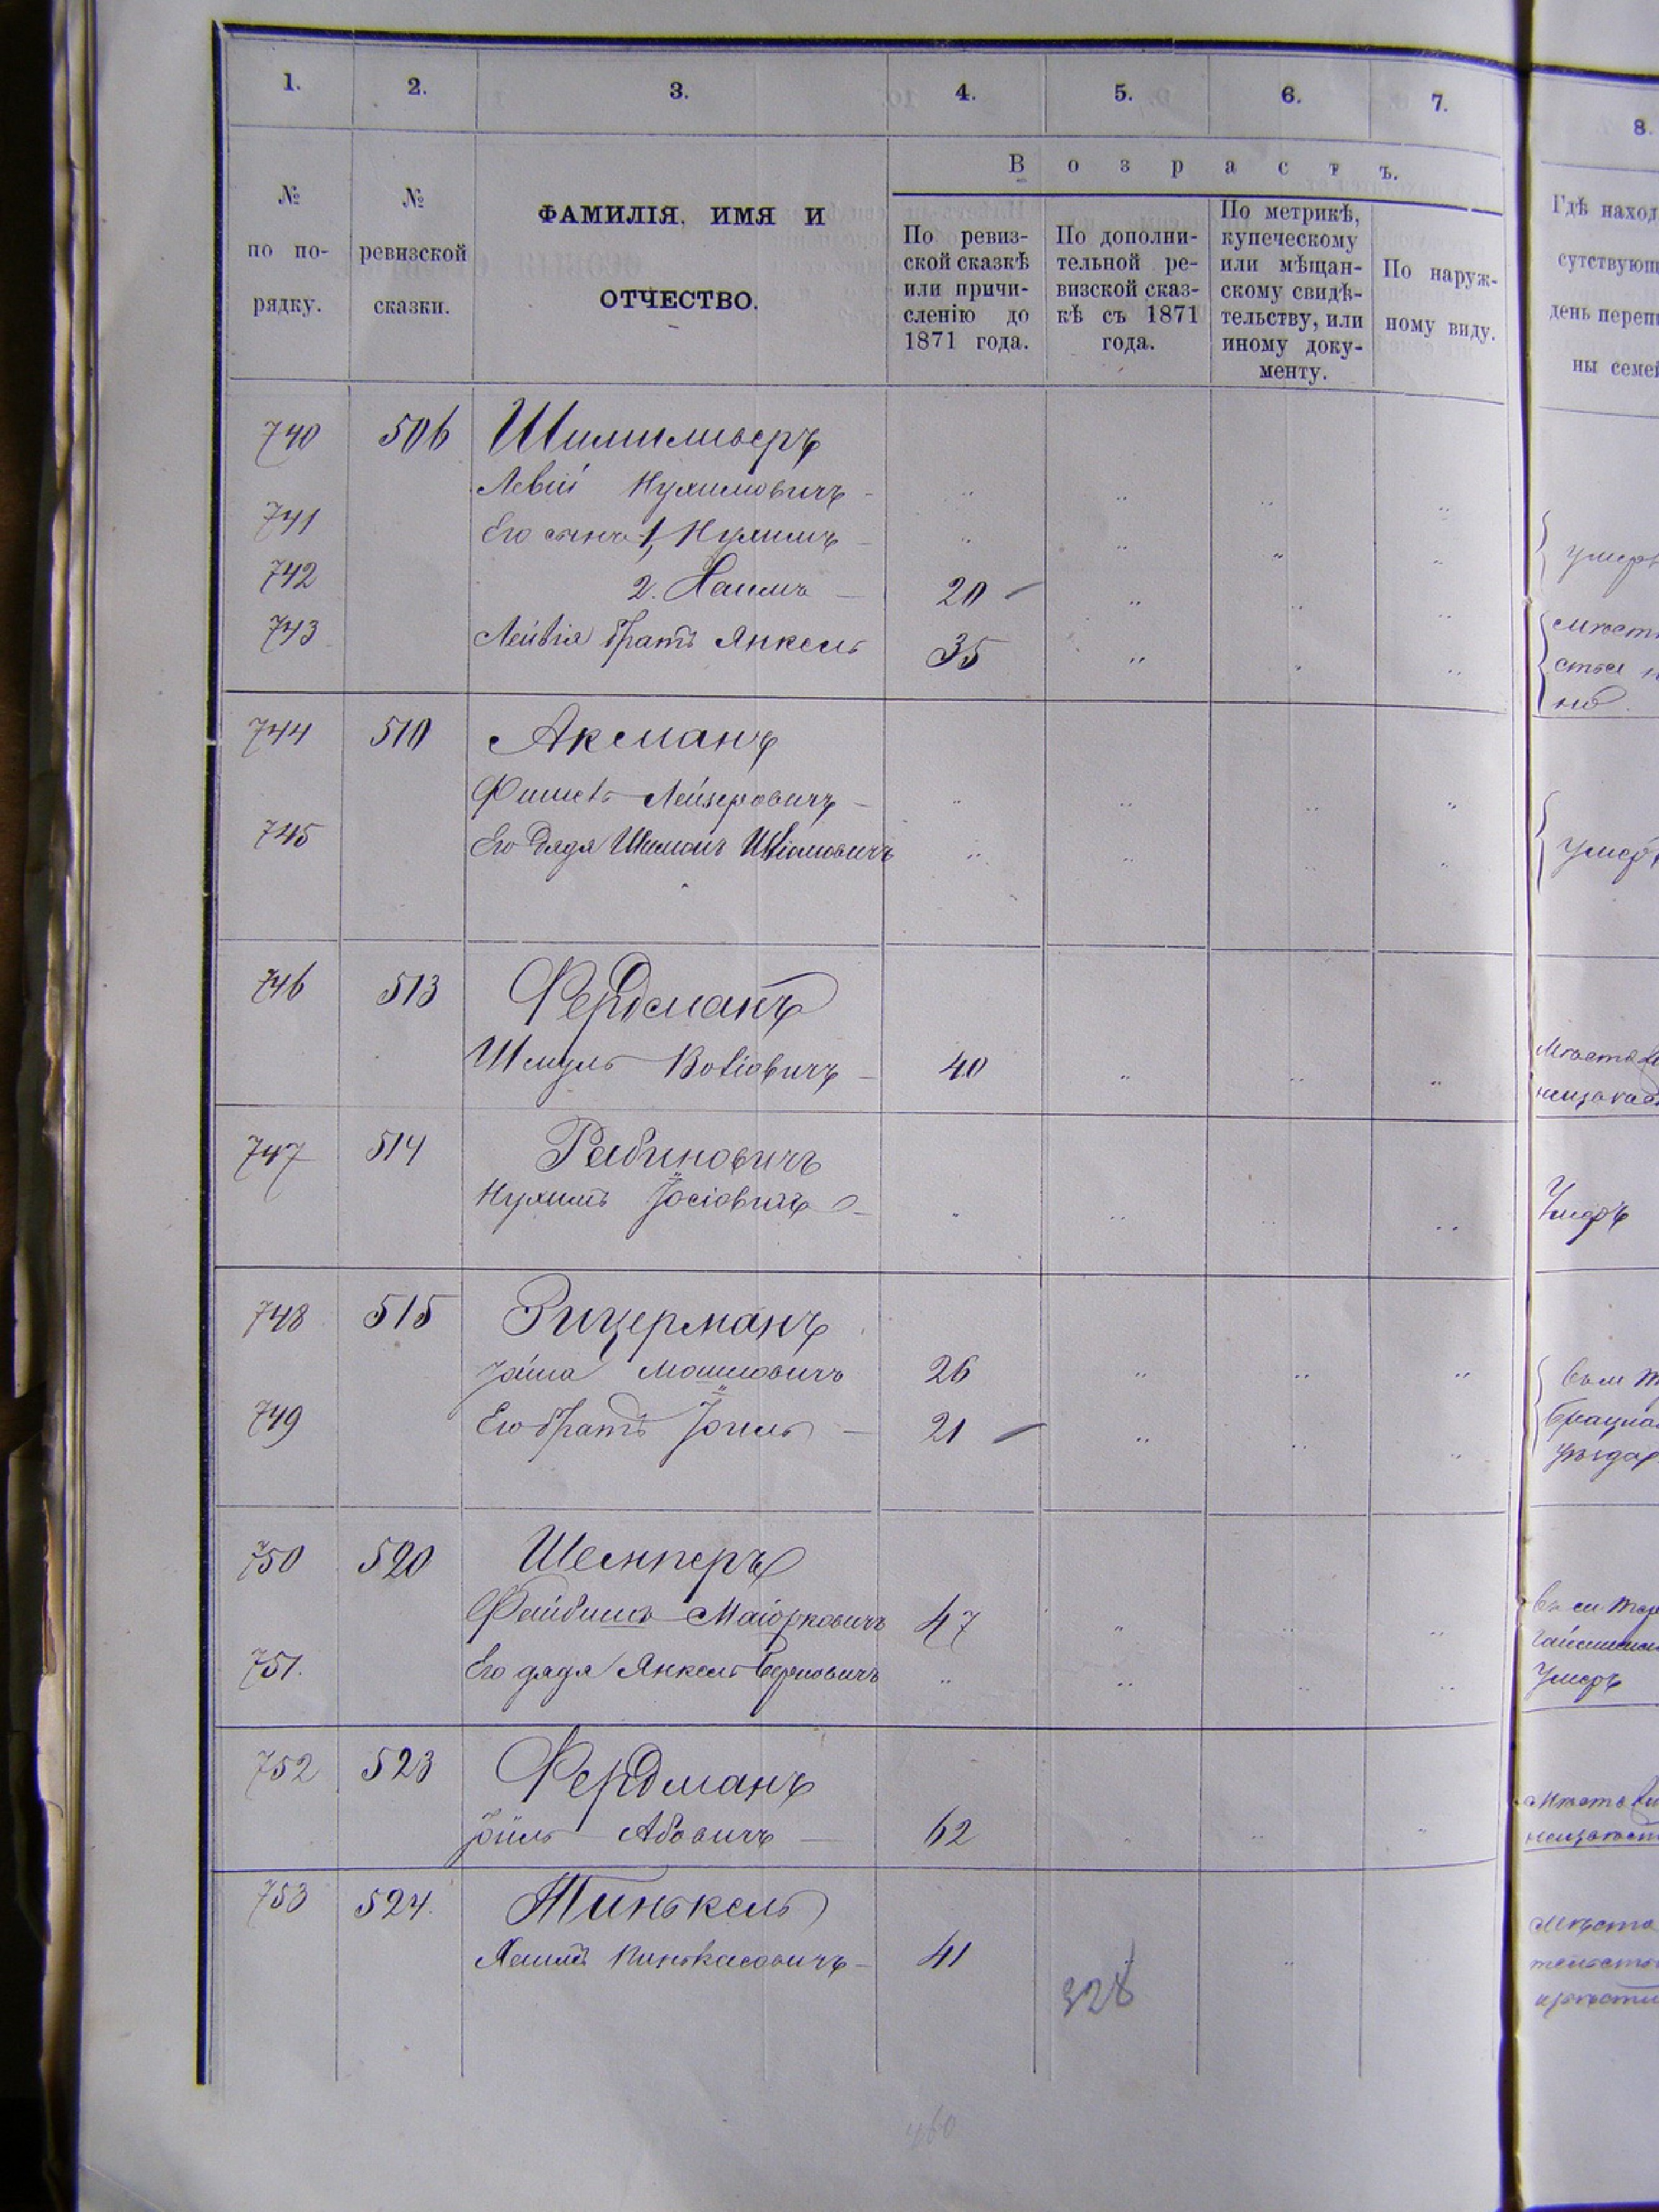 1. 2. 3. 4. 5. 6. 7. 8.
№ по по-рядку.
№ ревизской сказки.
ФАМИЛІЯ, ИМЯ И ОТЧЕСТВО.
Возрастъ.
По ревиз-
ской сказкѣ
или причи-
сленію до
1871 года.
По дополни-
тельной ре-
визской сказ-
кѣ съ 1871
года.
По метрикѣ,
купеческому
или мѣщан-
скому свидѣ-
тельству, или
иному доку-
менту.
По наруж-
ному виду.
Гдѣ наход
сутствующ
день переп
ны семе
740 506
Левій Нухимовичъ
741 Его сынъ 1, Нухимъ умер
742 2. Хаимъ 20
743 Лейвія братъ Янкель 35
744 510 Аксманъ
Фишель Лейзеровичъ
745 Его дядя Шимонъ умер
746 513 Фердманъ
Шмуль 40
747 514 Рабиновичъ
Нухимъ Іосіовичъ Умеръ
748 515 Зицерманъ
Мошковичъ 26
749 Его братъ Іоиль 21
750 520
Файбишъ Маіорковичъ 47
751. Его дядя Янкель Берковичъ Умеръ
752 523 Фердманъ
Іоиль Абовичъ 62
753 524. Тинькель
Хаимъ Пинькасовичъ 41
328
460